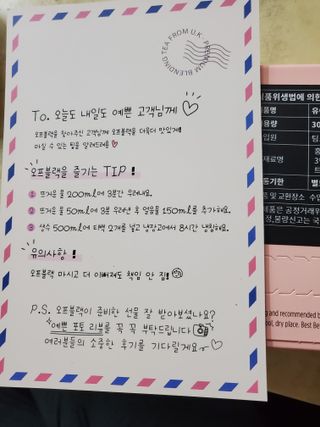 TEA FROM U.K · PREMIUM BLENDING
To. 오늘도 내일도 예쁜 고객님께
오프블랙을 찾아주신 고객님께 오프블랙을 더욱더 맛있게
마실 수 있는 팁을 알려드려요
오프블랙을 즐기는 TIP!
1 뜨거운 물 200ml에 3분간 우려내요.
2 뜨거운 물 50ml에 3분 우려낸 후 얼음물 150ml를 추가해요.
3 생수 500ml에 티백 2개를 넣고 냉장고에서 8시간 냉침해요.
유의사항!
오프블랙 마시고 더 이뻐져도 책임 안 짐!
P.S. 오프블랙이 준비한 선물 잘 받아보셨나요?
예쁜 포토 리뷰를 꼭 꼭 부탁드립니다
여러분들의 소중한 후기를 기다릴게요~
품위생법에 의한
품명
용량
입원
재료명
통기한
별
품 및 교환장소
제품은 공정거래위
ng and recommended b
ool, dry place. Best Be